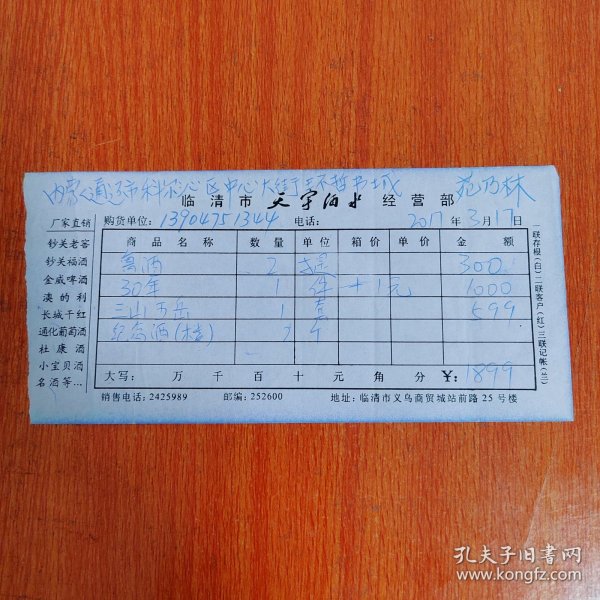 内蒙通辽市科尔沁区中心大街 书城 范乃林
临清市 天宇酒水 经营部
厂家直销 购货单位：13904751344 电话： 2017年3月17日
钞关老窖
钞关福酒
金威啤酒
澳的利
长城干红
通化葡萄酒
杜康酒
小宝贝酒
名酒等…
商品名称 数量 单位 箱价 单价 金额
酒 2 提 300
30年 1 件 +1元 1000
三山五岳 1 套 599
纪念酒
大写： 万 千 百 十 元 角 分 ¥：1899
销售电话：2425989 邮编：252600 地址：临清市义乌商贸城站前路25号楼
一联存根(白)二联客户(红)三联记帐(兰)
孔夫子旧书网
www.kongfz.com